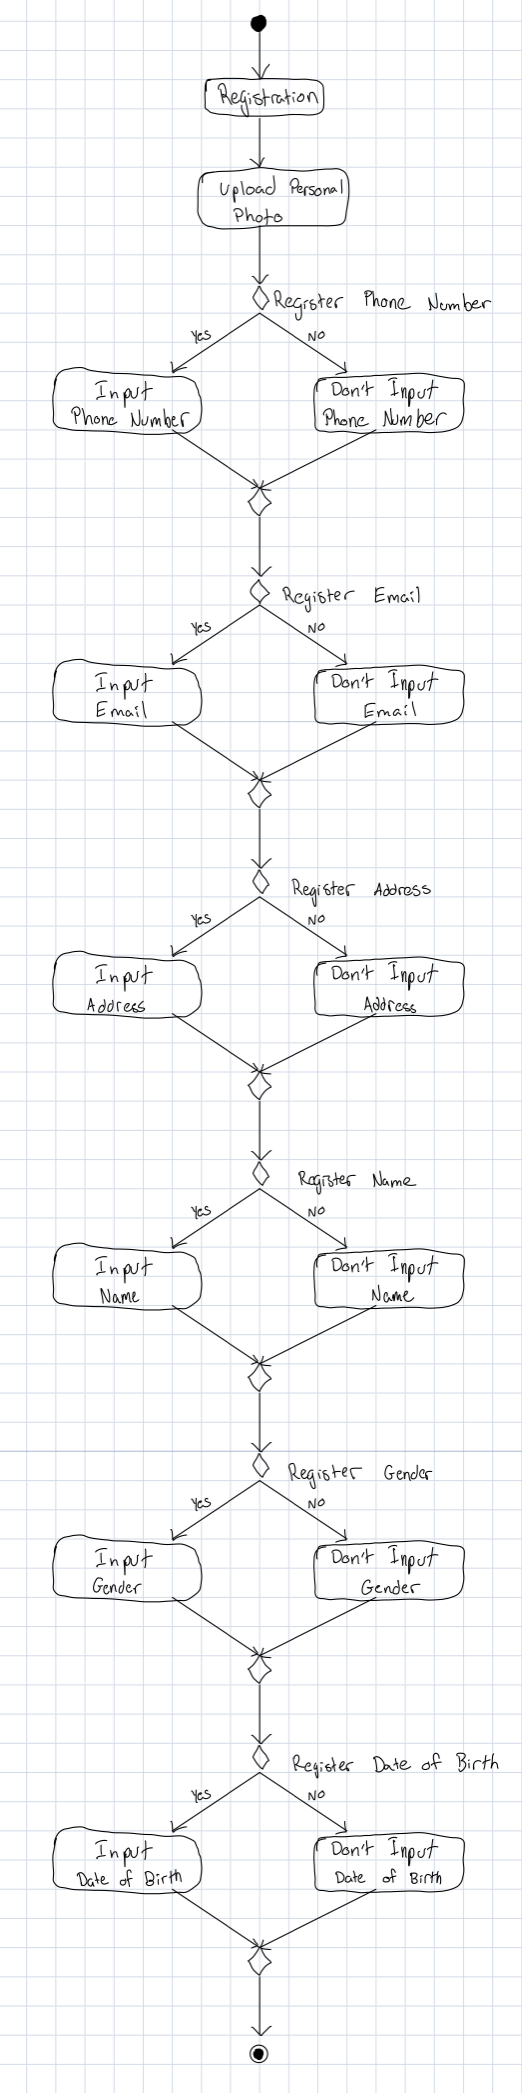 Registration
Upload Personal
Photo
Register Phone Number
Yes
No
Input
Phone Number
Don't Input
Phone Number
Register Email
Yes
No
Input
Email
Don't Input
Email
Register Address
Yes
No
Input
Address
Don't Input
Address
Register Name
Yes
No
Input
Name
Don't Input
Name
Register Gender
Yes
No
Input
Gender
Don't Input
Gender
Register Date of Birth
Yes
No
Input
Date of Birth
Don't Input
Date of Birth